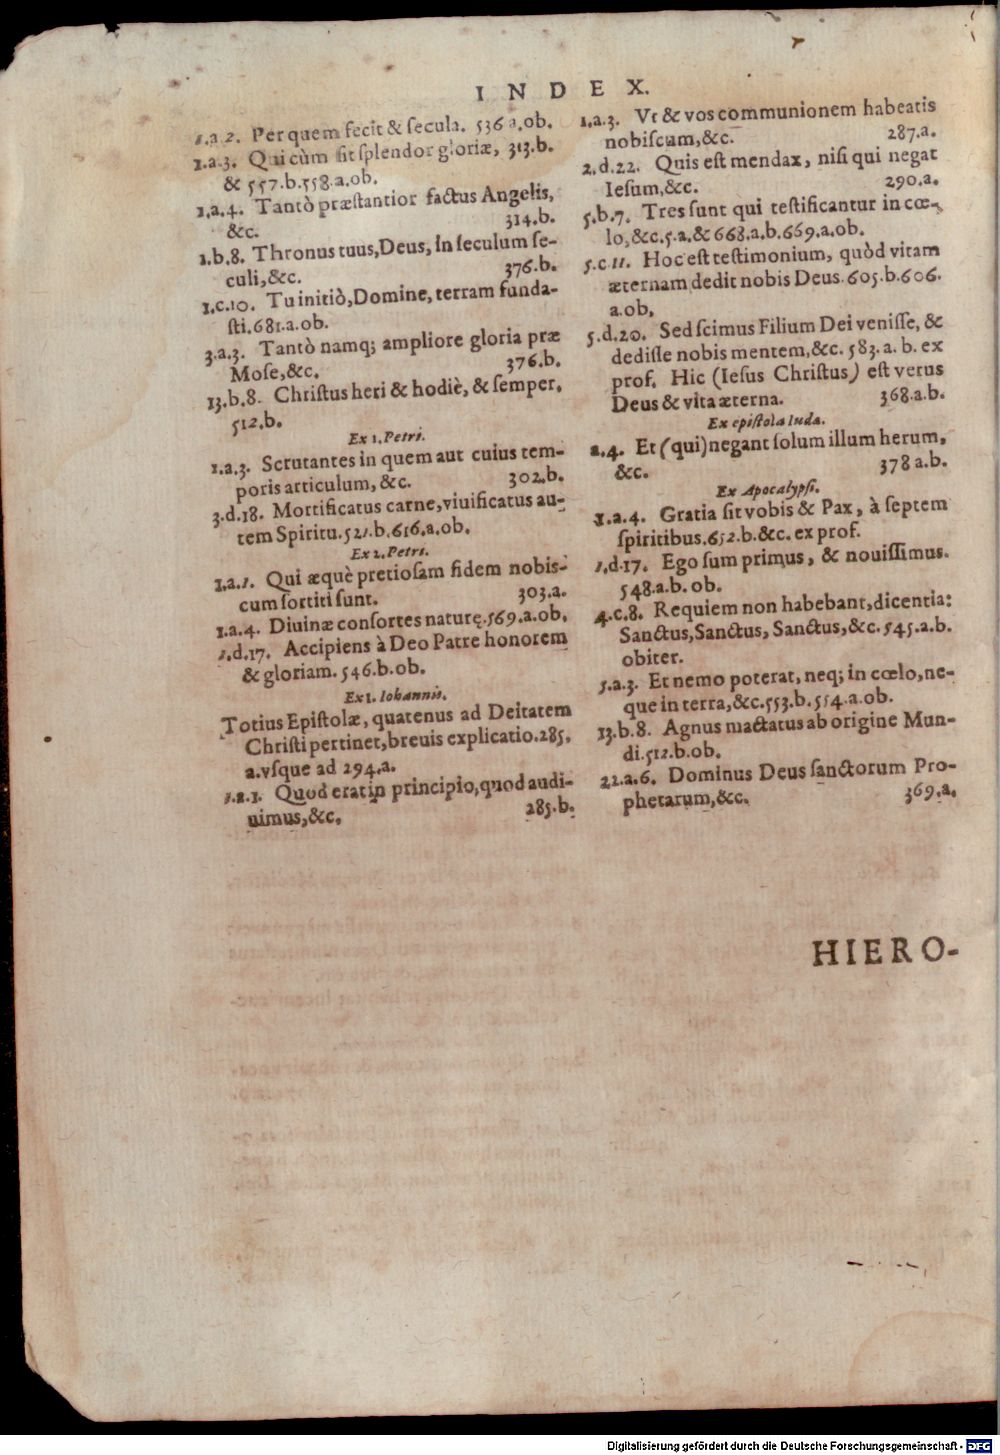 INDEX.
1.a.2. Per quem fecit & ſecula. 536 a.ob.
1.a.3. Qui cùm ſit ſplendor gloriæ, 313.b.
& 557.b.558.a.ob.
1.a.4. Tantò præſtantior factus Angelis,
&c. 314.b.
1.b.8. Thronus tuus, Deus, in ſeculum ſe-
culi,&c. 376.b.
1.c.10. Tu initiò, Domine, terram funda-
ſti.681.a.ob.
3.a.3. Tantò namq; ampliore gloria præ
Moſe,&c. 376.b.
13.b.8. Chriſtus heri & hodiè, & ſemper.
512.b.
Ex 1. Petri.
1.a.3. Scrutantes in quem aut cuius tem-
poris articulum, &c. 302.b.
3.d.18. Mortificatus carne, viuificatus au-
tem Spiritu.521.b.616.a.ob.
Ex 2. Petri.
1.a.1. Qui æquè pretioſam fidem nobis-
cum ſortiti ſunt. 303.a.
1.a.4. Diuinæ conſortes naturę.569.a.ob.
1.d.17. Accipiens à Deo Patre honorem
& gloriam. 546.b.ob.
Ex 1. Iohannis.
Totius Epiſtolæ, quatenus ad Deitatem
Chriſti pertinet, breuis explicatio.285.
a.vſque ad 294.a.
1.a.1. Quod erat in principio, quod audi-
uimus,&c. 285.b.
1.a.3. Vt & vos communionem habeatis
nobiſcum,&c. 287.a.
2.d.22. Quis eſt mendax, niſi qui negat
Ieſum,&c. 290.a.
5.b.7. Tres ſunt qui teſtificantur in cœ-
lo,&c.5.a.& 668.a.b.669.a.ob.
5.c.11. Hoc eſt teſtimonium, quòd vitam
æternam dedit nobis Deus.605.b.606.
a.ob.
5.d.20. Sed ſcimus Filium Dei veniſſe, &
dediſſe nobis mentem,&c. 583. a. b. ex
prof. Hic (Ieſus Chriſtus) eſt verus
Deus & vita æterna. 368.a.b.
Ex epiſtola Iudæ.
a.4. Et (qui) negant ſolum illum herum.
&c. 378 a.b.
Ex Apocalypſi.
1.a.4. Gratia ſit vobis & Pax, à ſeptem
ſpiritibus.652.b.&c. ex prof.
1.d.17. Ego ſum primus, & nouiſſimus.
548.a.b. ob.
4.c.8. Requiem non habebant, dicentia:
Sanctus, Sanctus, Sanctus,&c.545.a.b.
obiter.
5.a.3. Et nemo poterat, neq; in cœlo, ne-
que in terra,&c.553.b.554.a.ob.
13.b.8. Agnus mactatus ab origine Mun-
di.512.b.ob.
22.a.6. Dominus Deus ſanctorum Pro-
phetarum,&c. 369.a.
HIERO-
Digitalisierung gefördert durch die Deutsche Forschungsgemeinschaft - DFG